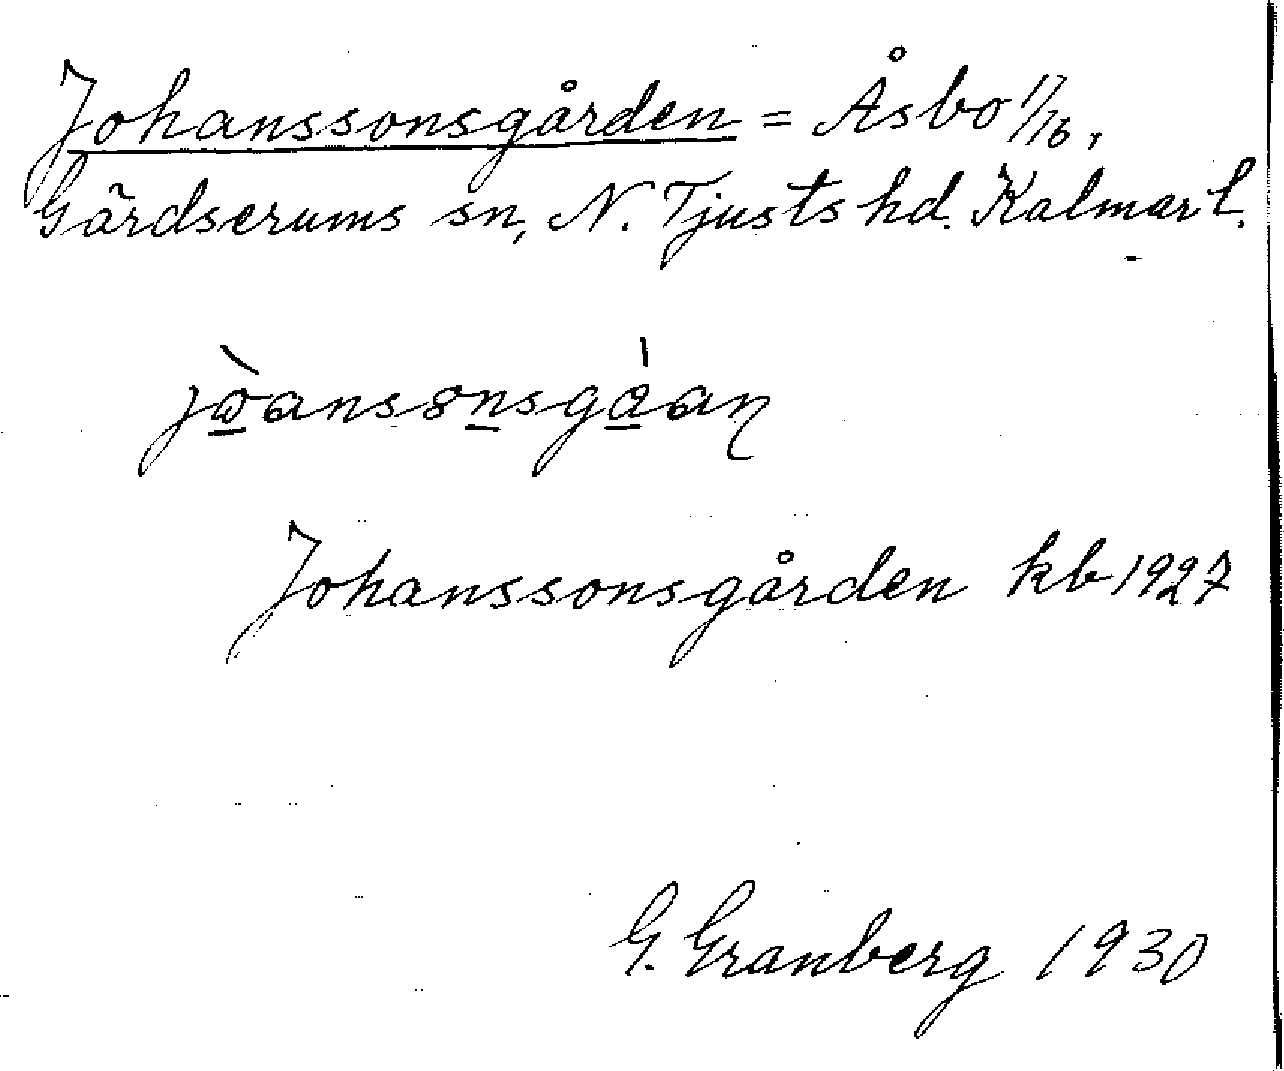 Johanssonsgården = Åsbo 1/16,
Gärdserums sn, N. Tjusts hd. Kalmar l.
Johanssonsgården kb 1927
G. Granberg 1930